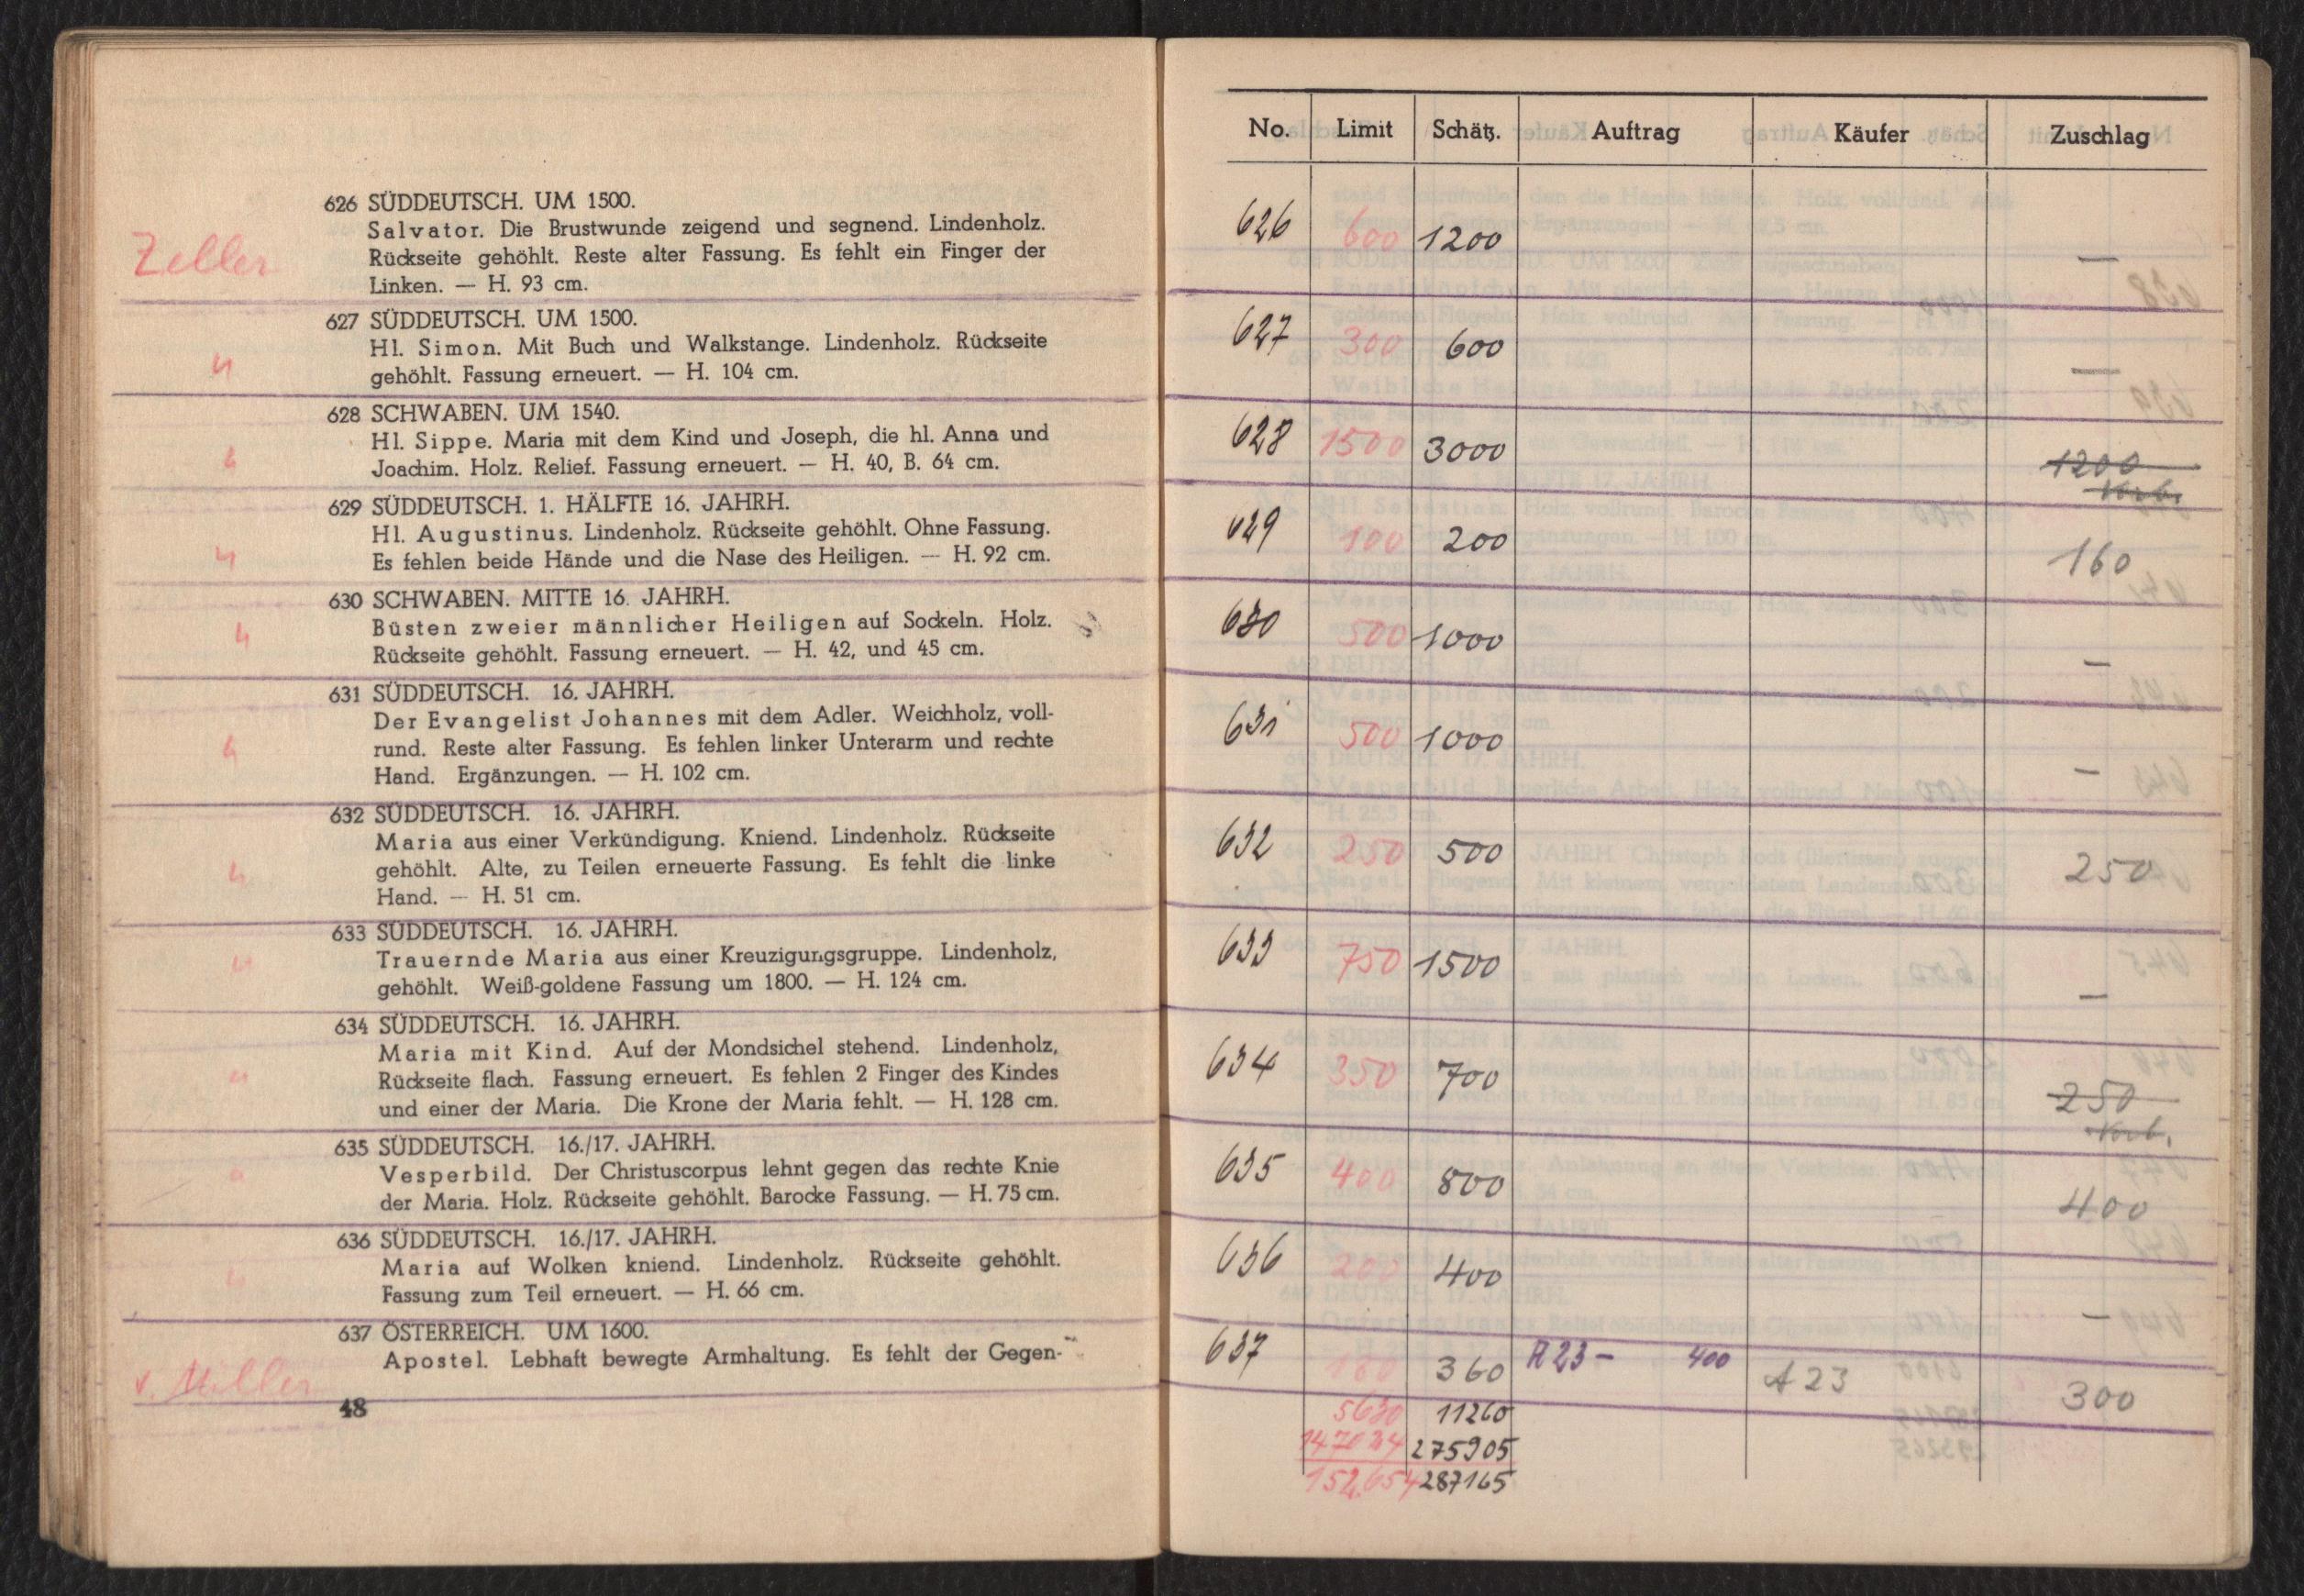 626 SÜDDEUTSCH. UM 1500.
Salvator. Die Brustwunde zeigend und segnend. Lindenholz.
Zeller
Rückseite gehöhlt. Reste alter Fassung. Es fehlt ein Finger der
Linken. — H. 93 cm.
627 SÜDDEUTSCH. UM 1500.
Hl. Simon. Mit Buch und Walkstange. Lindenholz. Rückseite
"
gehöhlt. Fassung erneuert. — H. 104 cm.
628 SCHWABEN. UM 1540.
Hl. Sippe. Maria mit dem Kind und Joseph, die hl. Anna und
"
Joachim. Holz. Relief. Fassung erneuert. — H. 40, B. 64 cm.
629 SÜDDEUTSCH. 1. HÄLFTE 16. JAHRH.
Hl. Augustinus. Lindenholz. Rückseite gehöhlt. Ohne Fassung.
"
Es fehlen beide Hände und die Nase des Heiligen. — H. 92 cm.
630 SCHWABEN. MITTE 16. JAHRH.
Büsten zweier männlicher Heiligen auf Sockeln. Holz.
"
Rückseite gehöhlt. Fassung erneuert. — H. 42, und 45 cm.
631 SÜDDEUTSCH. 16. JAHRH.
Der Evangelist Johannes mit dem Adler. Weichholz, voll-
"
rund. Reste alter Fassung. Es fehlen linker Unterarm und rechte
Hand. Ergänzungen. — H. 102 cm.
632 SÜDDEUTSCH. 16. JAHRH.
Maria aus einer Verkündigung. Kniend. Lindenholz. Rückseite
"
gehöhlt. Alte, zu Teilen erneuerte Fassung. Es fehlt die linke
Hand. — H. 51 cm.
633 SÜDDEUTSCH. 16. JAHRH.
Trauernde Maria aus einer Kreuzigungsgruppe. Lindenholz,
"
gehöhlt. Weiß-goldene Fassung um 1800. — H. 124 cm.
634 SÜDDEUTSCH. 16. JAHRH.
Maria mit Kind. Auf der Mondsichel stehend. Lindenholz,
"
Rückseite flach. Fassung erneuert. Es fehlen 2 Finger des Kindes
und einer der Maria. Die Krone der Maria fehlt. — H. 128 cm.
635 SÜDDEUTSCH. 16./17. JAHRH.
Vesperbild. Der Christuscorpus lehnt gegen das rechte Knie
"
der Maria. Holz. Rückseite gehöhlt. Barocke Fassung. — H. 75 cm.
636 SÜDDEUTSCH. 16./17. JAHRH.
Maria auf Wolken kniend. Lindenholz. Rückseite gehöhlt.
"
Fassung zum Teil erneuert. — H. 66 cm.
637 ÖSTERREICH. UM 1600.
Apostel. Lebhaft bewegte Armhaltung. Es fehlt der Gegen-
v. Miller
48
No. Limit Schätz. Auftrag Käufer Zuschlag
626 600 1200 —
627 300 600 —
628 1500 3000 1200
Vorb.
629 100 200 160
630 500 1000 —
631 500 1000 —
632 250 500 250
633 750 1500 —
634 350 700 250
Vorb.
635 400 800 400
636 200 400 —
637 180 360 A 23 — 400 A 23 300
5630 11260
147024 275905
152.654 287165